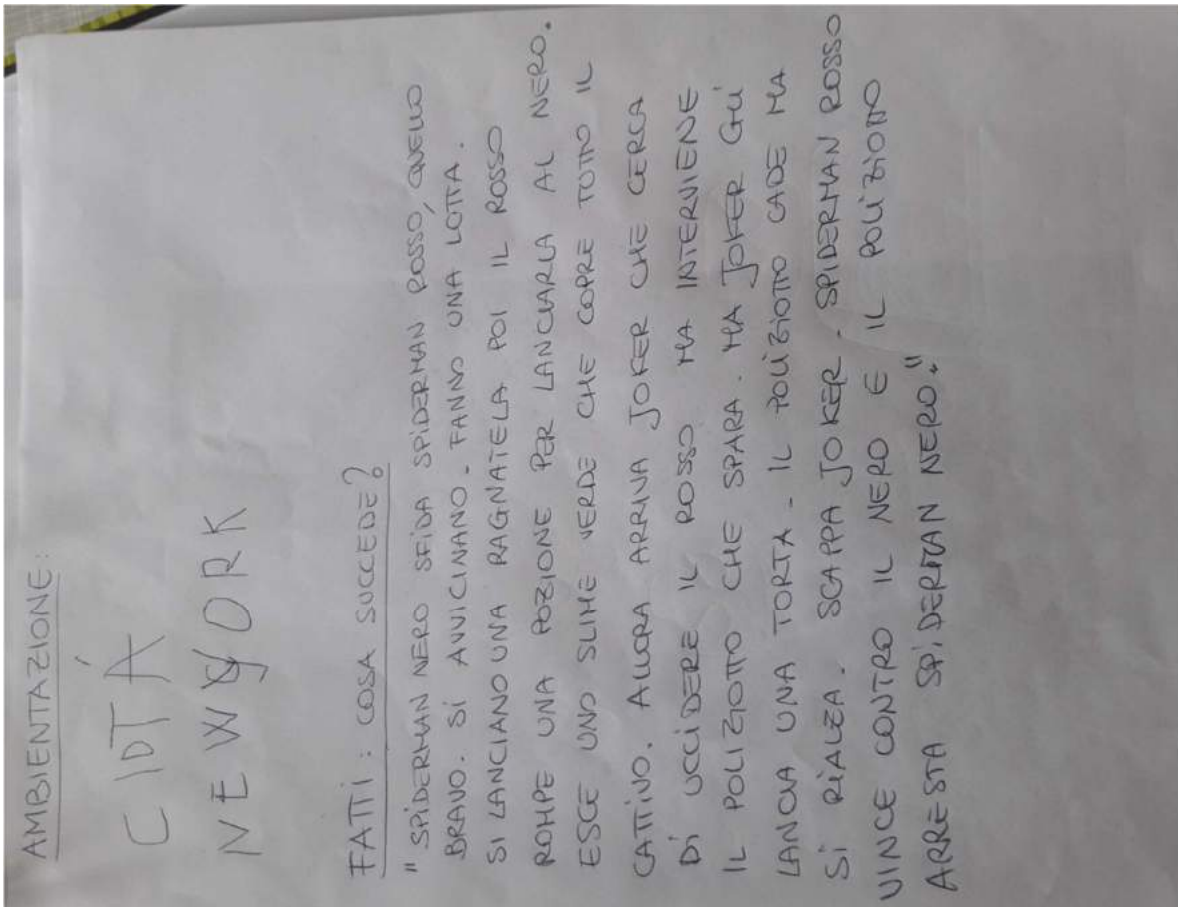 AMBIENTAZIONE:
CIDTÀ
NEW YORK
FATTI: COSA SUCCEDE?
"SPIDERMAN NERO SFIDA SPIDERMAN ROSSO, QUELLO
BRAVO. SI AVVICINANO. FANNO UNA LOTTA.
SI LANCIANO UNA RAGNATELA POI IL ROSSO
ROMPE UNA POZIONE PER LANCIARLA AL NERO.
ESCE UNO SLIME VERDE CHE COPRE TUTTO IL
CATTIVO. ALLORA ARRIVA JOKER CHE CERCA
DI UCCIDERE IL ROSSO MA INTERVIENE
IL POLIZIOTTO CHE SPARA. MA JOKER GLI
LANCIA UNA TORTA. IL POLIZIOTTO CADE MA
SI RIALZA. SCAPPA JOKER. SPIDERMAN ROSSO
VINCE CONTRO IL NERO E IL POLIZIOTTO
ARRESTA SPIDERMAN NERO."